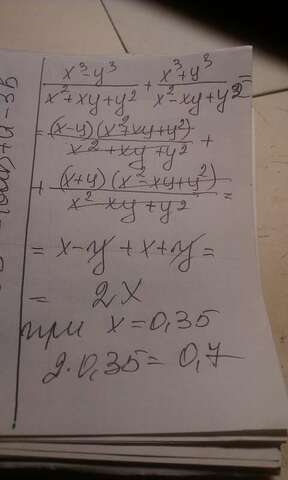 x³-y³/x²+xy+y² + x³+y³/x²-xy+y² =
= (x-y)(x²+xy+y²)/x²+xy+y² +
+ (x+y)(x²-xy+y²)/x² xy+y² =
= x-y+x+y =
= 2x
при x=0,35
2·0,35=0,7